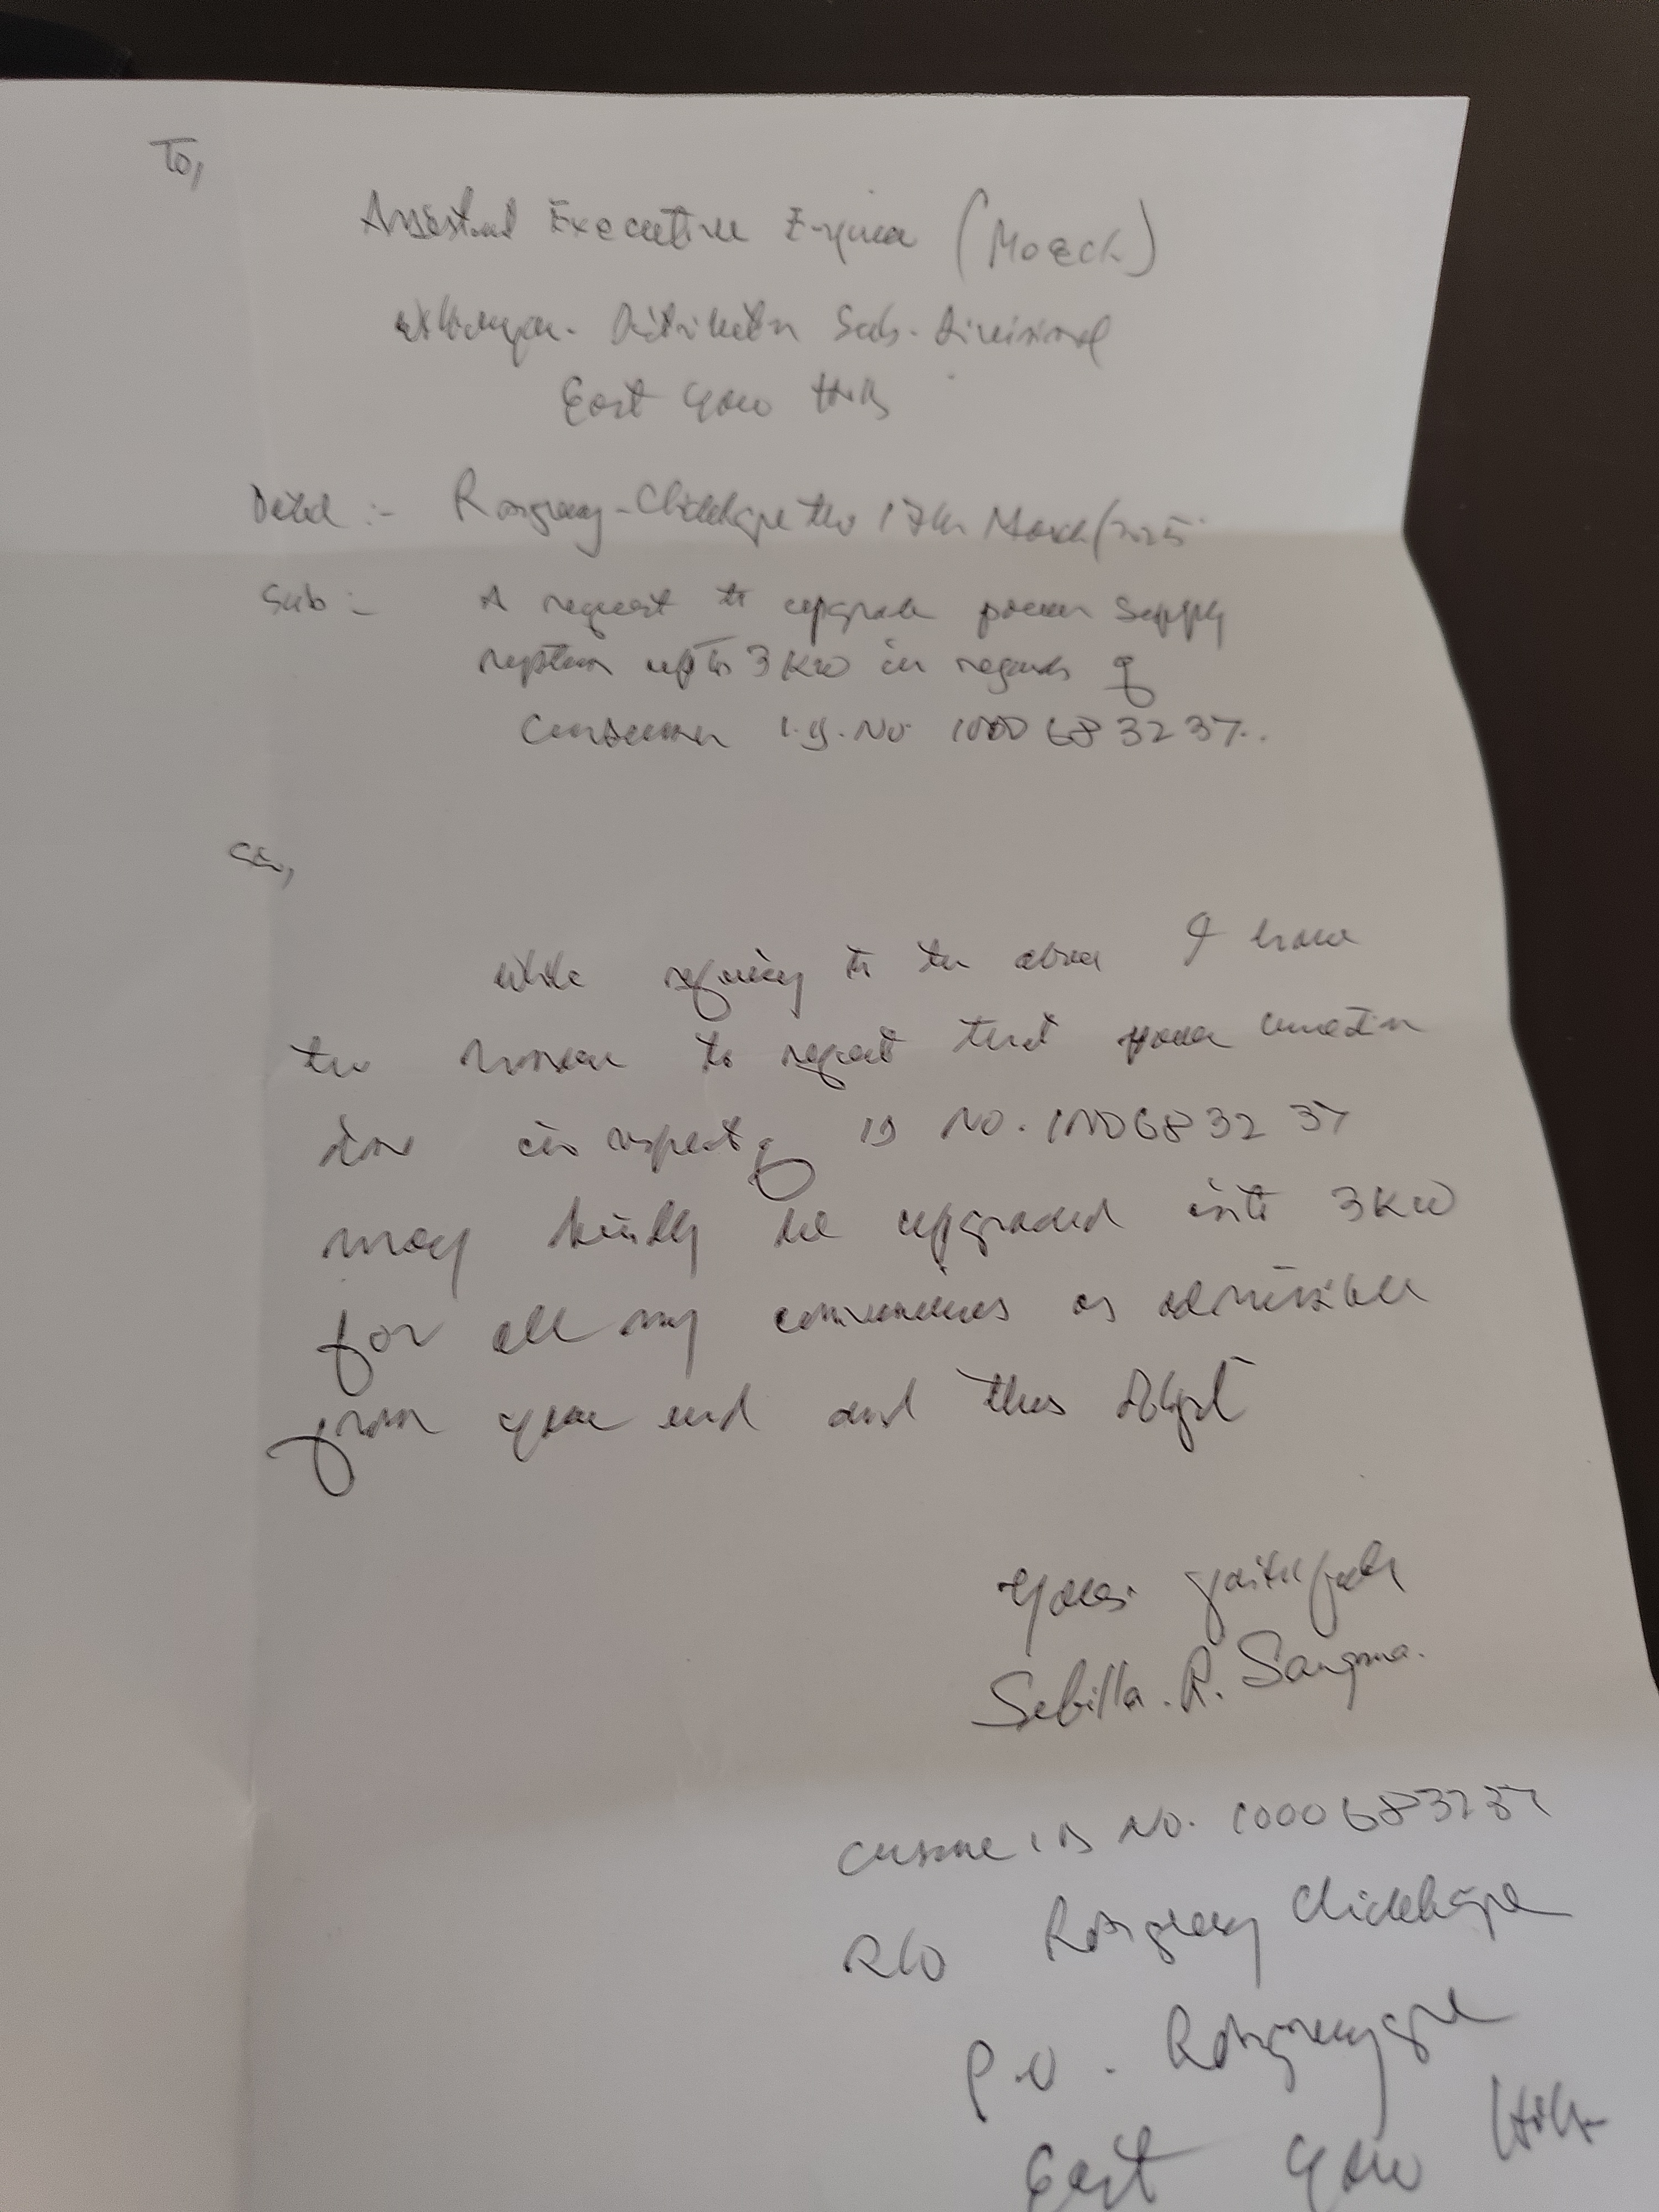 To,
Assistant Executive Engineer (MoECL)
Distribution Sub-Divisional
East Garo Hills
Dated :- Rongreng-Chidekgre the 17th March/2025
Sub :- A request to upgrade power supply
system upto 3 KW in regards of
Consumer I.D. No 1000683237.
Sir,
While referring to the above I have
the honour to request that power connection
line in respect of ID No. 1000683237
may kindly be upgraded into 3KW
for all my conveniences as admissible
from your end and thus obliged
Yours faithfully
Sebilla. R. Sangma.
Consumer ID No. 1000683237
R/O Rongreng Chidekgre
P.O. Rongrenggre
East Garo Hills